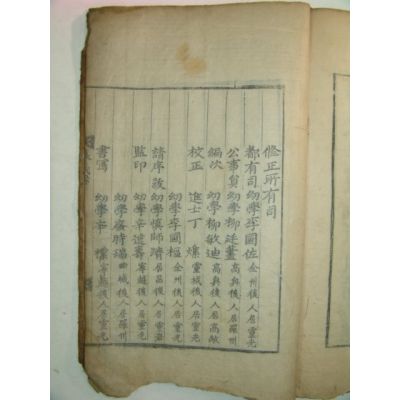 修正所有司
都有司 幼學李國佐 全州後人居靈光
公事員 幼學柳廷藎 高興後人居羅州
編次 幼學柳敏迪 高興後人居高敞
校正 進士丁 爍 靈城後人居靈光
幼學李國樞 全州後人居靈光
請序跋 幼學愼師濟 居昌後人居靈光
監印 幼學辛 壽 寧越後人居靈光
幼學 時瑞 城後人居羅州
書寫 幼學辛 寧越後人居靈光